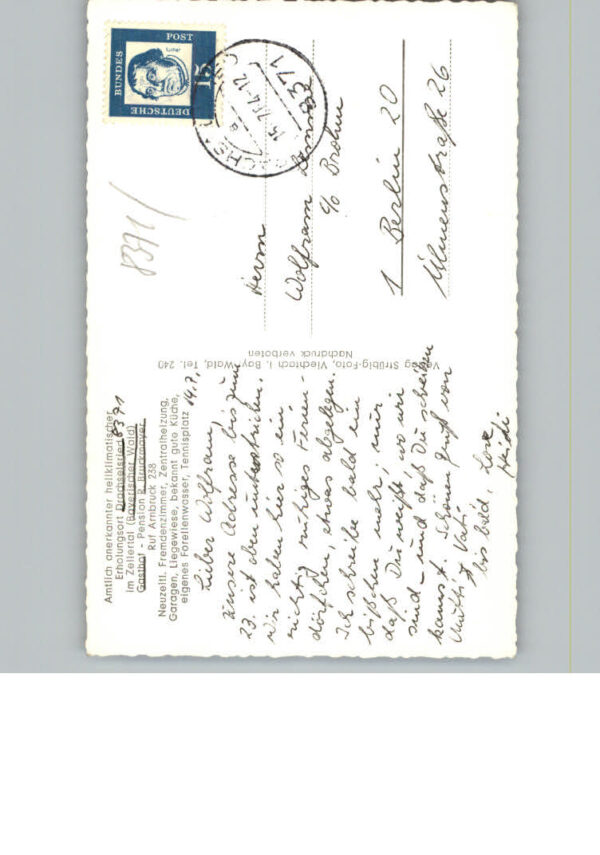 Amtlich anerkannter heilklimatischer
Erholungsort Drachselsried 8371
im Zellertal (Bayerischer Wald)
Gasthof - Pension Bruckmayer
Ruf Arnbruck 238
Neuzeitl. Fremdenzimmer, Zentralheizung,
Garagen, Liegewiese, bekannt gute Küche,
eigenes Forellenwasser, Tennisplatz
14.7.
Lieber Wolfram,
unsere Adresse bis zum
23. ist oben unterstrichen.
Wir haben hier so ein
richtig ruhiges Ferien-
dörfchen, etwas abgelegen.
Ich schreibe bald ein
bißchen mehr, nur
daß Du weißt, wo wir
sind - und daß Du schreiben
kannst. Schönen Gruß von
Mutti & Vati
bis bald,
Heidi
Verlag Strüblg-Foto, Viechtach i. Bay. Wald, Tel. 240
Nachdruck verboten
8371/
DEUTSCHE
BUNDES
POST
15
Luther
371
Herrn
Wolfram
c/o Brohm
1 Berlin 20
Ulmenstraße 26